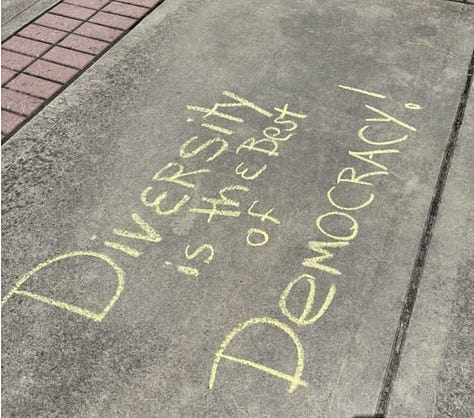 DivERSity
is thE BEST
of
DeMOCRACY!